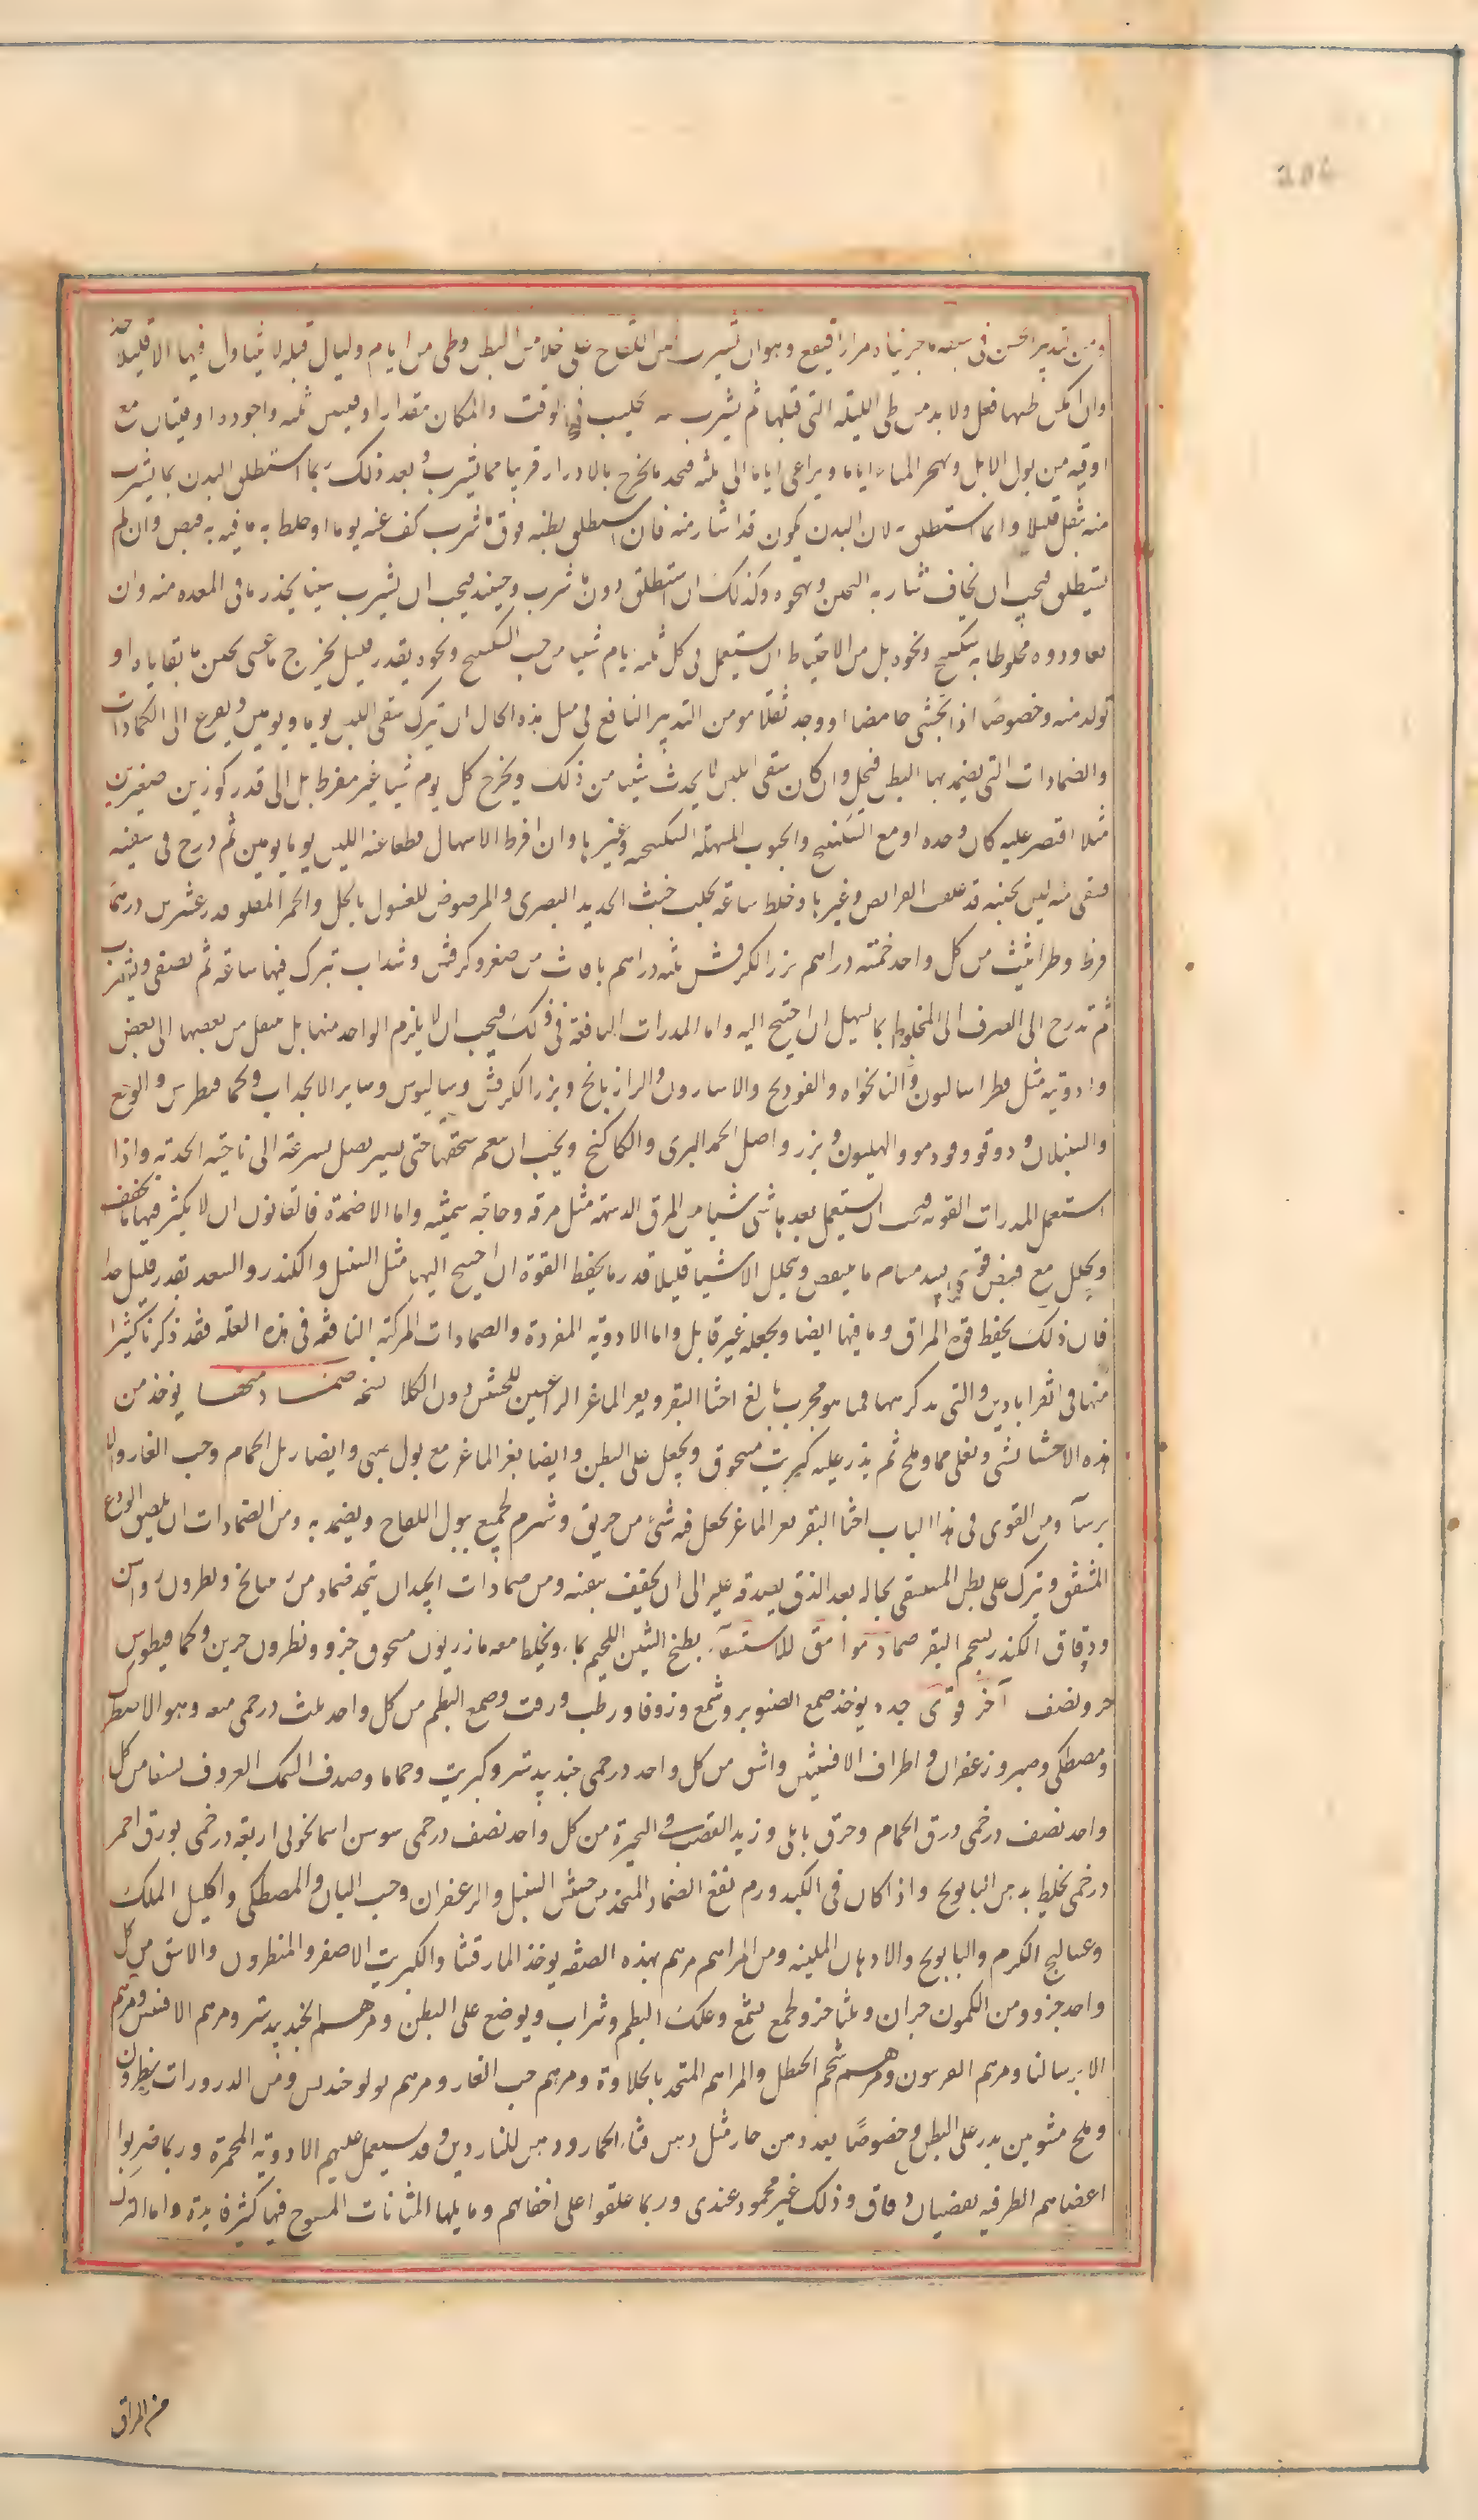 204
ومن تدبير الحسن في سقيه ما جربناه مرارا فنفع وهو ان يشرب لبن اللقاح على خلا من البطن وطى من ايام وليال قبله لا يتناول فيها الا قليلا جدا
وان امكن طيها فعل ولا بد من طى الليلة التى قبلها ثم يشرب منه حليب في الوقت والمكان مقدار اوقيتين ثلثه واجوده اوقيتان مع
اوقيه من بول الابل ويهجر الماء اياما ويراعى اياما الى ثلثه فنجد ما يخرج بالادرار قريبا مما يشرب وبعد ذلك ربما استطلق البدن بما يشرب
منه بثفل قليلا وانما استطلق به لان البدن يكون قد اشار منه فان استطلق بطنه فوق ما شرب كف عنه يوما او خلط به ما فيه به قبض وان لم
يستطلق فيجب ان يخاف شاربه التجبن ونهجوه وكذلك ان استطلق دون ما شرب وحينئذ فيجب ان يشرب شيئا يحدر ما فى المعده منه وان
يعاوده مخلوطا به سكبينج ونحوه بل من الاحتياط ان يستعمل فى كل ثلثه ايام شيئا من حب السكبينج ونحوه بقدر قليل يخرج ما عسى تجبن من بقاياه او
تولد منه وخصوصا اذا تجشى حامضا او وجد ثقلا ومن التدبير النافع فى مثل هذه الحال ان تترك سقى اللبن يوما ويومين ويفرع الى الكمادات
والضمادات التى يضمد بها البطن فيحل وان كان سقى اللبن لا يحدث شيئا من ذلك ويخرج كل يوم شيئا غير مفرط بل الى قدر كوزين صغيرين
مثلا اقتصر عليه كان وحده او مع السكبينج والحبوب المسهلة السكبينجيه وغيرها وان افرط الاسهال قطعا عنه اللبن يوما يومين ثم درج فى سقيه
فسقى منه لبن نجيبه قد علف القوابض وغيرها وخلط ساعة يحلب خبث الحديد البصرى والمرضوض المغسول بالخل والخمر المقلو قدر عشرين درهما
قرط وطراثيث من كل واحد خمسه دراهم بزر الكرفس ثلثه دراهم باقات من صعتر وكرفس وسذاب تترك فيها ساعة ثم يصفى ويشرب
ثم تدرج الى الصرف الى المخلوط بما يسهل ان احتيج اليه واما المدرات النافعة فى ذلك فيجب ان لا يلزم الواحد منها بل ينتقل من بعضها الى بعض
وادويه مثل فطراساليون والنانخواه والفوذنج والاسارون والرازيانج وبزر الكرفس وساليوس وساير الانجدان وكمافيطوس والوج
والسنبلان ودوقو وفوه ومو والهليون وبزره واصل الحمد البرى والكاكنج ويجب ان ينعم سحقها حتى يسير يصل بسرعة الى ناحية الحدبة واذا
استعمل المدرات القويه فيجب ان يستعمل بعدها شيئا من المرق الدسمة مثل مرقه دجاجه سمينه واما الاضمدة فالقانون ان لا يكثر فيها ما يجفف
ويحلل مع قبض قوى يسد مسام ما يتنفس ويتحلل الا شيئا قليلا قدر ما يحفظ القوة ان احتيج اليها مثل السنبل والكندر والسعد بقدر قليل جدا
فان ذلك يحفظ قوة المراق وما فيها ايضا ويجعله غير قابل واما الادويه المفردة والضمادات المركبة النافعه فى هذه العلة فقد ذكرنا كثيرا
منها فى القراباذين والتى نذكر هاهنا فمما هو مجرب نافع اخثا البقر وبعر الماعز الراعيين للحشيش دون الكلا نسخه ضماد منها يوخذ من
هذه الاخثا شئ ويغلى بماء وملح ثم يذر عليه كبريت مسحوق ويجعل على البطن وايضا بعر الماعز مع بول صبى وايضا زبل الحمام وحب الغار والا
يرسا ومن القوى فى هذا الباب اخثا البقر بعر الماعز يجعل فيه شئ من خربق وشبرم يجمع ببول اللقاح ويضمد به ومن الضمادات ان يلصق الودع
المشقق ويترك على بطن المستسقى بحاله بعد الدق بصدفه عليه الى ان يجفف بنفسه ومن ضمادات الجيدان يتخذ ضماد من ريتيانج ونطرون وراسن
ودقاق الكندر بشحم البقر ضماد موافق للاستسقاء يطبخ التين اللحيم بماء ويخلط معه مازريون مسحوق جزو ونطرون جزين وكمافيطوس
جزو ونصف آخر قوى جدا يوخذ صمغ الصنوبر وشمع وزوفا ورطب وزفت وصمغ البطم من كل واحد ثلث درخمى ميعه وهو الاصطرك
ومصطكى وصبر وزعفران واطراف الافسنتين واشق من كل واحد درخمى جندبيدستر وكبريت وحماما وصدف السمك المعروف بسيفا من كل
واحد نصف درخمى ذرق الحمام وحرف بابلى وزبد القصب فى البحيرة من كل واحد نصف درخمى سوسن اسمانجونى اربعه درخمى بورق احمر
درخمى يخلط بدهن البابونج واذا كان فى الكبد ورم نفع الضماد المتخذ من حشيش السنبل والزعفران وحب البان والمصطكى واكليل الملك
وعساليج الكرم والبابونج والادهان الملينه ومن المراهم مرهم بهذه الصفه يوخذ المارقشيثا والكبريت الاصفر والنطرون والاشق من كل
واحد جزو ومن الكمون جزان وثلثا جزو يجمع بشمع وعلك البطم وشراب ويوضع على البطن ومرهم الجندبيدستر ومرهم الافسنتين ومرهم
الايرسا لنا ومرهم الفربيون ومرهم شحم الحنظل والمراهم المتخذ بالحلاوة ومرهم حب الغار ومرهم بولوخندس ومن الذرورات نطرون
وملح مشوين يذر على البطن وخصوصا بعد دهن حار مثل دهن قثاء الحمار ودهن الناردين وقد يستعمل عليهم الادوية المحمرة وربما ضربوا
اعضاهم الطرفيه بقضبان دقاق وذلك غير محمود عندى وربما علقوا على احقائهم وما يليها المثانات المنفوخ فيها كثير فايدة واما البزل
من المراق